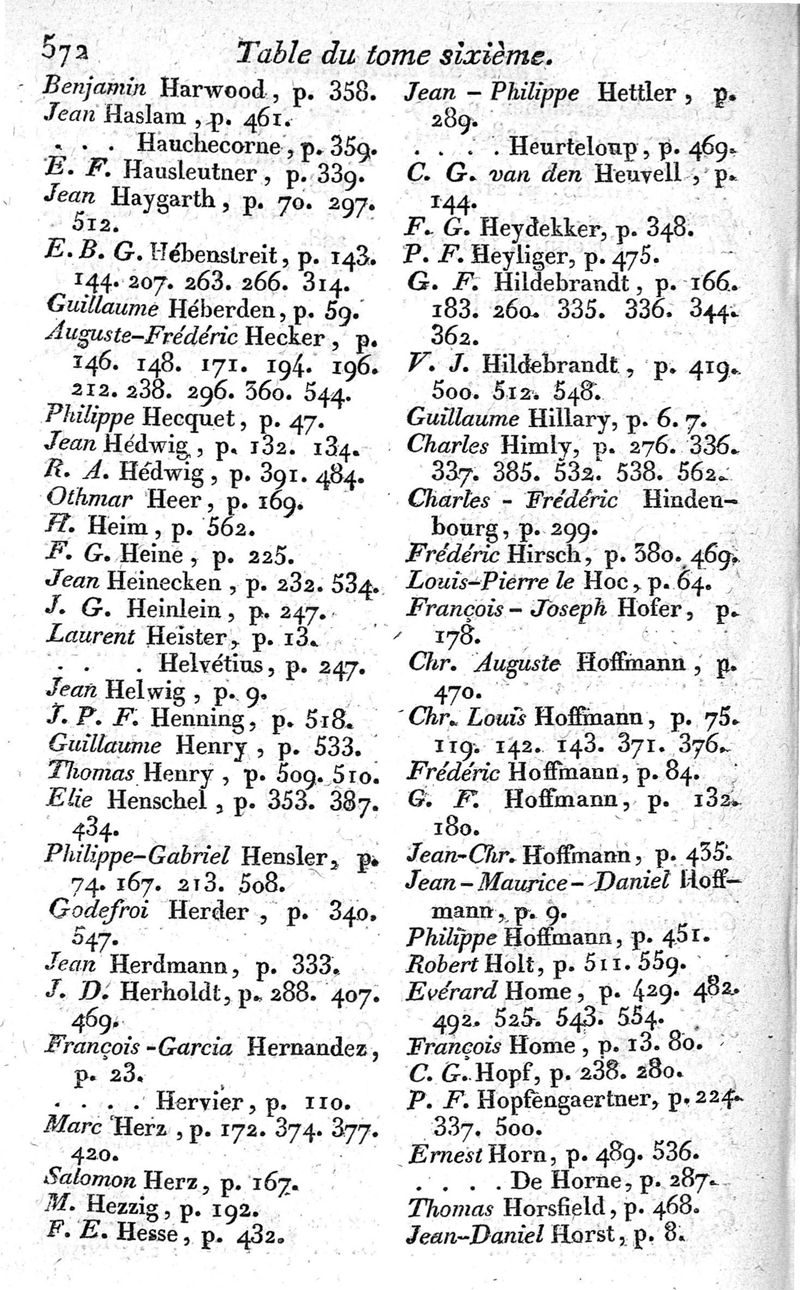 572 Table du tome sixième.
Benjamin Harwood, p. 358.
Jean Haslam, p. 461.
. . . Hauchecorne, p. 359.
E. F. Hausleutner, p. 339.
Jean Haygarth, p. 70. 297.
512.
E. B. G. Hébenstreit, p. 143.
144. 207. 263. 266. 314.
Guillaume Héberden, p. 59.
Auguste-Frédéric Hecker, p.
146. 148. 171. 194. 196.
212. 238. 296. 360. 544.
Philippe Hecquet, p. 47.
Jean Hédwig, p. 132. 134.
R. A. Hédwig, p. 391. 484.
Othmar Heer, p. 169.
H. Heim, p. 562.
F. G. Heine, p. 225.
Jean Heinecken, p. 232. 534.
J. G. Heinlein, p. 247.
Laurent Heister, p. 13.
. . . Helvétius, p. 247.
Jean Helwig, p. 9.
J. P. F. Henning, p. 518.
Guillaume Henry, p. 533.
Thomas Henry, p. 509. 510.
Elie Henschel, p. 353. 387.
434.
Philippe-Gabriel Hensler, p.
74. 167. 213. 508.
Godefroi Herder, p. 340.
547.
Jean Herdmann, p. 333.
J. D. Herholdt, p. 288. 407.
469.
François-Garcia Hernandez,
p. 23.
. . . . Hervier, p. 110.
Marc Herz, p. 172. 374. 377.
420.
Salomon Herz, p. 167.
M. Hezzig, p. 192.
F. E. Hesse, p. 432.
Jean - Philippe Hettler, p.
289.
. . . . Heurteloup, p. 469.
C. G. van den Heuvell, p.
144.
F. G. Heydekker, p. 348.
P. F. Heyliger, p. 475.
G. F. Hildebrandt, p. 166.
183. 260. 335. 336. 344.
362.
V. J. Hildebrandt, p. 419.
500. 512. 548.
Guillaume Hillary, p. 6. 7.
Charles Himly, p. 276. 336.
337. 385. 532. 538. 562.
Charles - Frédéric Hinden-
bourg, p. 299.
Frédéric Hirsch, p. 380. 469.
Louis-Pierre le Hoc, p. 64.
François - Joseph Hofer, p.
178.
Chr. Auguste Hoffmann, p.
470.
Chr. Louis Hoffmann, p. 75.
119. 142. 143. 371. 376.
Frédéric Hoffmann, p. 84.
G. F. Hoffmann, p. 132.
180.
Jean-Chr. Hoffmann, p. 435.
Jean - Maurice - Daniel Hoff-
mann, p. 9.
Philippe Hoffmann, p. 451.
Robert Holt, p. 511. 559.
Evérard Home, p. 429. 482.
492. 525. 543. 554.
François Home, p. 13. 80.
C. G. Hopf, p. 238. 280.
P. F. Hopfengaertner, p. 224.
337. 500.
Ernest Horn, p. 489. 536.
. . . . De Horne, p. 287.
Thomas Horsfield, p. 468.
Jean-Daniel Horst, p. 8.